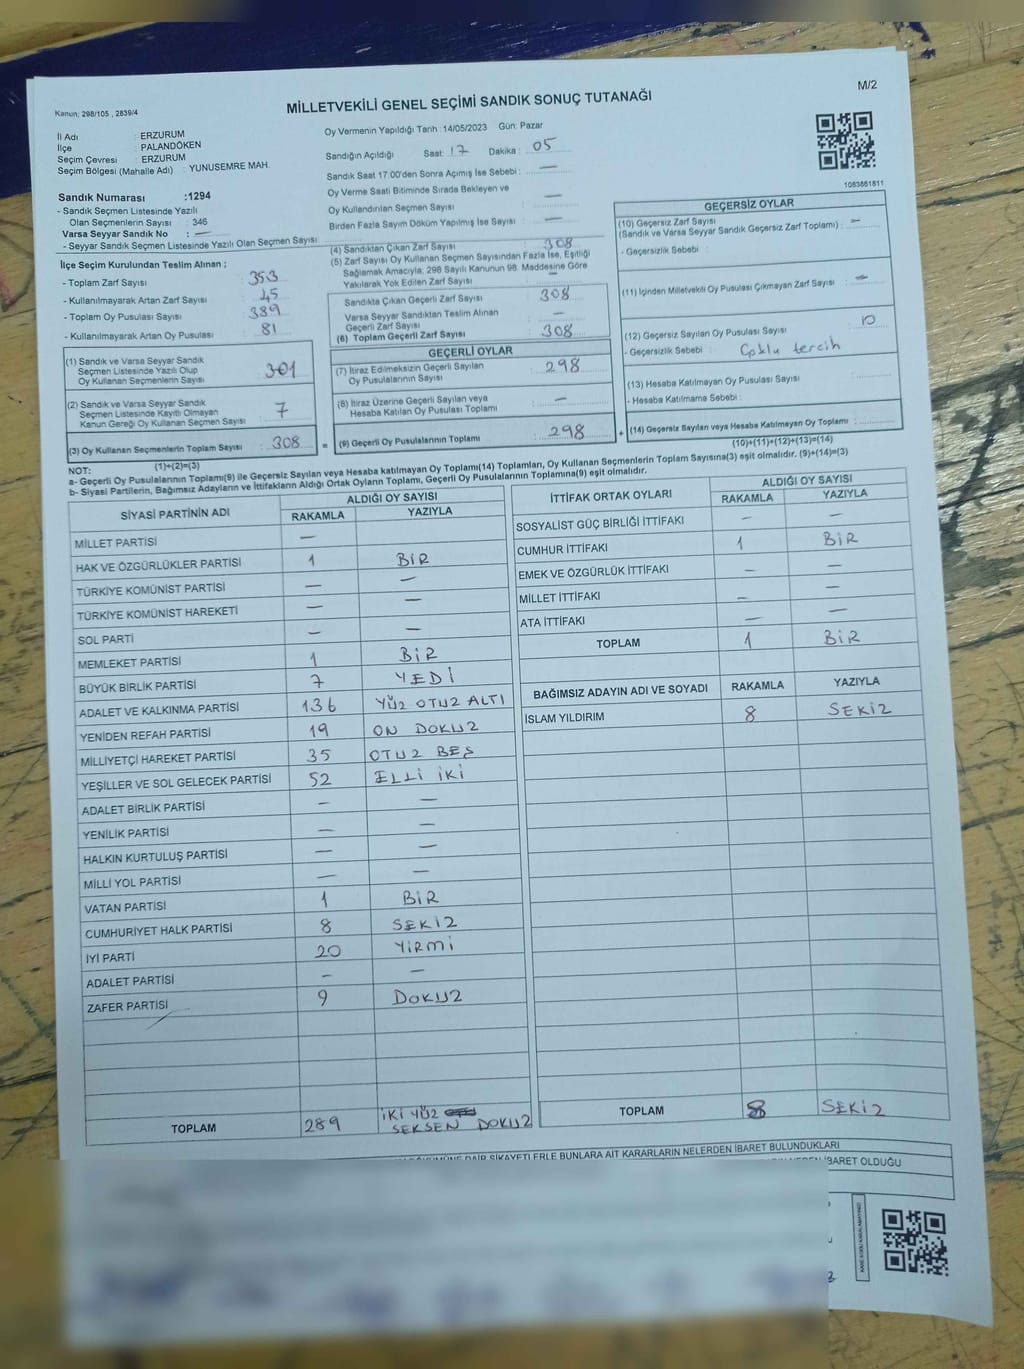 M/2
Kanun: 298/105 , 2839/4
MİLLETVEKİLİ GENEL SEÇİMİ SANDIK SONUÇ TUTANAĞI
İl Adı : ERZURUM
İlçe : PALANDÖKEN
Seçim Çevresi : ERZURUM
Seçim Bölgesi (Mahalle Adı) : YUNUSEMRE MAH.
Sandık Numarası :1294
- Sandık Seçmen Listesinde Yazılı
Olan Seçmenlerin Sayısı : 346
Varsa Seyyar Sandık No : —
- Seyyar Sandık Seçmen Listesinde Yazılı Olan Seçmen Sayısı
İlçe Seçim Kurulundan Teslim Alınan ;
- Toplam Zarf Sayısı : 353
- Kullanılmayarak Artan Zarf Sayısı : 45
- Toplam Oy Pusulası Sayısı : 389
- Kullanılmayarak Artan Oy Pusulası : 81
(1) Sandık ve Varsa Seyyar Sandık
Seçmen Listesinde Yazılı Olup
Oy Kullanan Seçmenlerin Sayısı : 301
(2) Sandık ve Varsa Seyyar Sandık
Seçmen Listesinde Kayıtlı Olmayan
Kanun Gereği Oy Kullanan Seçmen Sayısı : 7
(3) Oy Kullanan Seçmenlerin Toplam Sayısı : 308
(1)+(2)=(3)
Oy Vermenin Yapıldığı Tarih :14/05/2023 Gün: Pazar
Sandığın Açıldığı Saat: 17 Dakika : 05
Sandık Saat 17:00'den Sonra Açımış İse Sebebi : —
Oy Verme Saati Bitiminde Sırada Bekleyen ve
Oy Kullandırılan Seçmen Sayısı : —
Birden Fazla Sayım Döküm Yapılmış İse Sayısı : —
(4) Sandıktan Çıkan Zarf Sayısı : 308
(5) Zarf Sayısı Oy Kullanan Seçmen Sayısından Fazla İse, Eşitliği
Sağlamak Amacıyla, 298 Sayılı Kanunun 98. Maddesine Göre
Yakılarak Yok Edilen Zarf Sayısı : —
Sandıkta Çıkan Geçerli Zarf Sayısı : 308
Varsa Seyyar Sandıktan Teslim Alınan
Geçerli Zarf Sayısı : —
(6) Toplam Geçerli Zarf Sayısı : 308
GEÇERLİ OYLAR
(7) İtiraz Edilmeksizin Geçerli Sayılan
Oy Pusulalarının Sayısı : 298
(8) İtiraz Üzerine Geçerli Sayılan veya
Hesaba Katılan Oy Pusulası Toplamı : —
= (9) Geçerli Oy Pusulalarının Toplamı : 298 +
1083661811
GEÇERSİZ OYLAR
(10) Geçersiz Zarf Sayısı
(Sandık ve Varsa Seyyar Sandık Geçersiz Zarf Toplamı) : —
- Geçersizlik Sebebi :
(11) İçinden Milletvekili Oy Pusulası Çıkmayan Zarf Sayısı : —
(12) Geçersiz Sayılan Oy Pusulası Sayısı : 10
- Geçersizlik Sebebi : Çoklu tercih
(13) Hesaba Katılmayan Oy Pusulası Sayısı :
- Hesaba Katılmama Sebebi :
(14) Geçersiz Sayılan veya Hesaba Katılmayan Oy Toplamı :
(10)+(11)+(12)+(13)=(14)
NOT:
a- Geçerli Oy Pusulalarının Toplamı(9) ile Geçersiz Sayılan veya Hesaba katılmayan Oy Toplamı(14) Toplamları, Oy Kullanan Seçmenlerin Toplam Sayısına(3) eşit olmalıdır. (9)+(14)=(3)
b- Siyasi Partilerin, Bağımsız Adayların ve İttifakların Aldığı Ortak Oyların Toplamı, Geçerli Oy Pusulalarının Toplamına(9) eşit olmalıdır.
SİYASİ PARTİNİN ADI ALDIĞI OY SAYISI
RAKAMLA YAZIYLA
MİLLET PARTİSİ —
HAK VE ÖZGÜRLÜKLER PARTİSİ 1 BİR
TÜRKİYE KOMÜNİST PARTİSİ — —
TÜRKİYE KOMÜNİST HAREKETİ — —
SOL PARTİ — —
MEMLEKET PARTİSİ 1 BİR
BÜYÜK BİRLİK PARTİSİ 7 YEDİ
ADALET VE KALKINMA PARTİSİ 136 YÜZ OTUZ ALTI
YENİDEN REFAH PARTİSİ 19 ON DOKUZ
MİLLİYETÇİ HAREKET PARTİSİ 35 OTUZ BEŞ
YEŞİLLER VE SOL GELECEK PARTİSİ 52 ELLİ İKİ
ADALET BİRLİK PARTİSİ — —
YENİLİK PARTİSİ — —
HALKIN KURTULUŞ PARTİSİ — —
MİLLİ YOL PARTİSİ — —
VATAN PARTİSİ 1 BİR
CUMHURİYET HALK PARTİSİ 8 SEKİZ
İYİ PARTİ 20 YİRMİ
ADALET PARTİSİ — —
ZAFER PARTİSİ 9 DOKUZ
TOPLAM 289 İKİ YÜZ
SEKSEN DOKUZ
İTTİFAK ORTAK OYLARI ALDIĞI OY SAYISI
RAKAMLA YAZIYLA
SOSYALİST GÜÇ BİRLİĞİ İTTİFAKI — —
CUMHUR İTTİFAKI 1 BİR
EMEK VE ÖZGÜRLÜK İTTİFAKI — —
MİLLET İTTİFAKI — —
ATA İTTİFAKI — —
TOPLAM 1 BİR
BAĞIMSIZ ADAYIN ADI VE SOYADI RAKAMLA YAZIYLA
İSLAM YILDIRIM 8 SEKİZ
TOPLAM 8 SEKİZ
DAİR ŞİKAYETLERLE BUNLARA AİT KARARLARIN NELERDEN İBARET BULUNDUKLARI
İBARET OLDUĞU